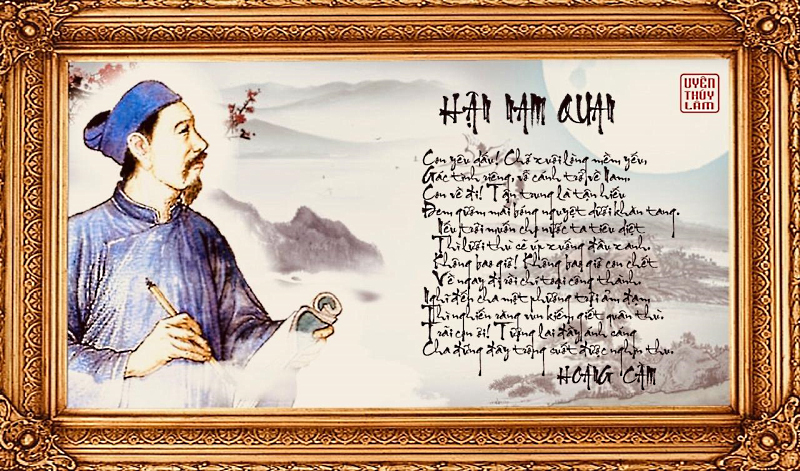 HẬN NAM QUAN
UYÊN
THÚY
LÂM
Con yêu dấu! Chớ xuôi lòng mềm yếu,
Gác tình riêng, vỗ cánh trở về Nam.
Con về đi! Tận trung là tận hiếu
Đem gươm mài bóng nguyệt dưới khăn tang.
Nếu trời muốn cho nước ta tiêu diệt
Thì lưới thù sẽ úp xuống đầu xanh.
Không bao giờ! Không bao giờ con chết
Về ngay đi rồi chí toại công thành.
Nghĩ đến cha một phương trời ảm đạm
Thì nghiến răng vung kiếm giết quân thù.
Trãi con ơi! Tương lai đầy ánh sáng
Cha đứng đây trông suốt được nghìn thu.
HOÀNG CẦM